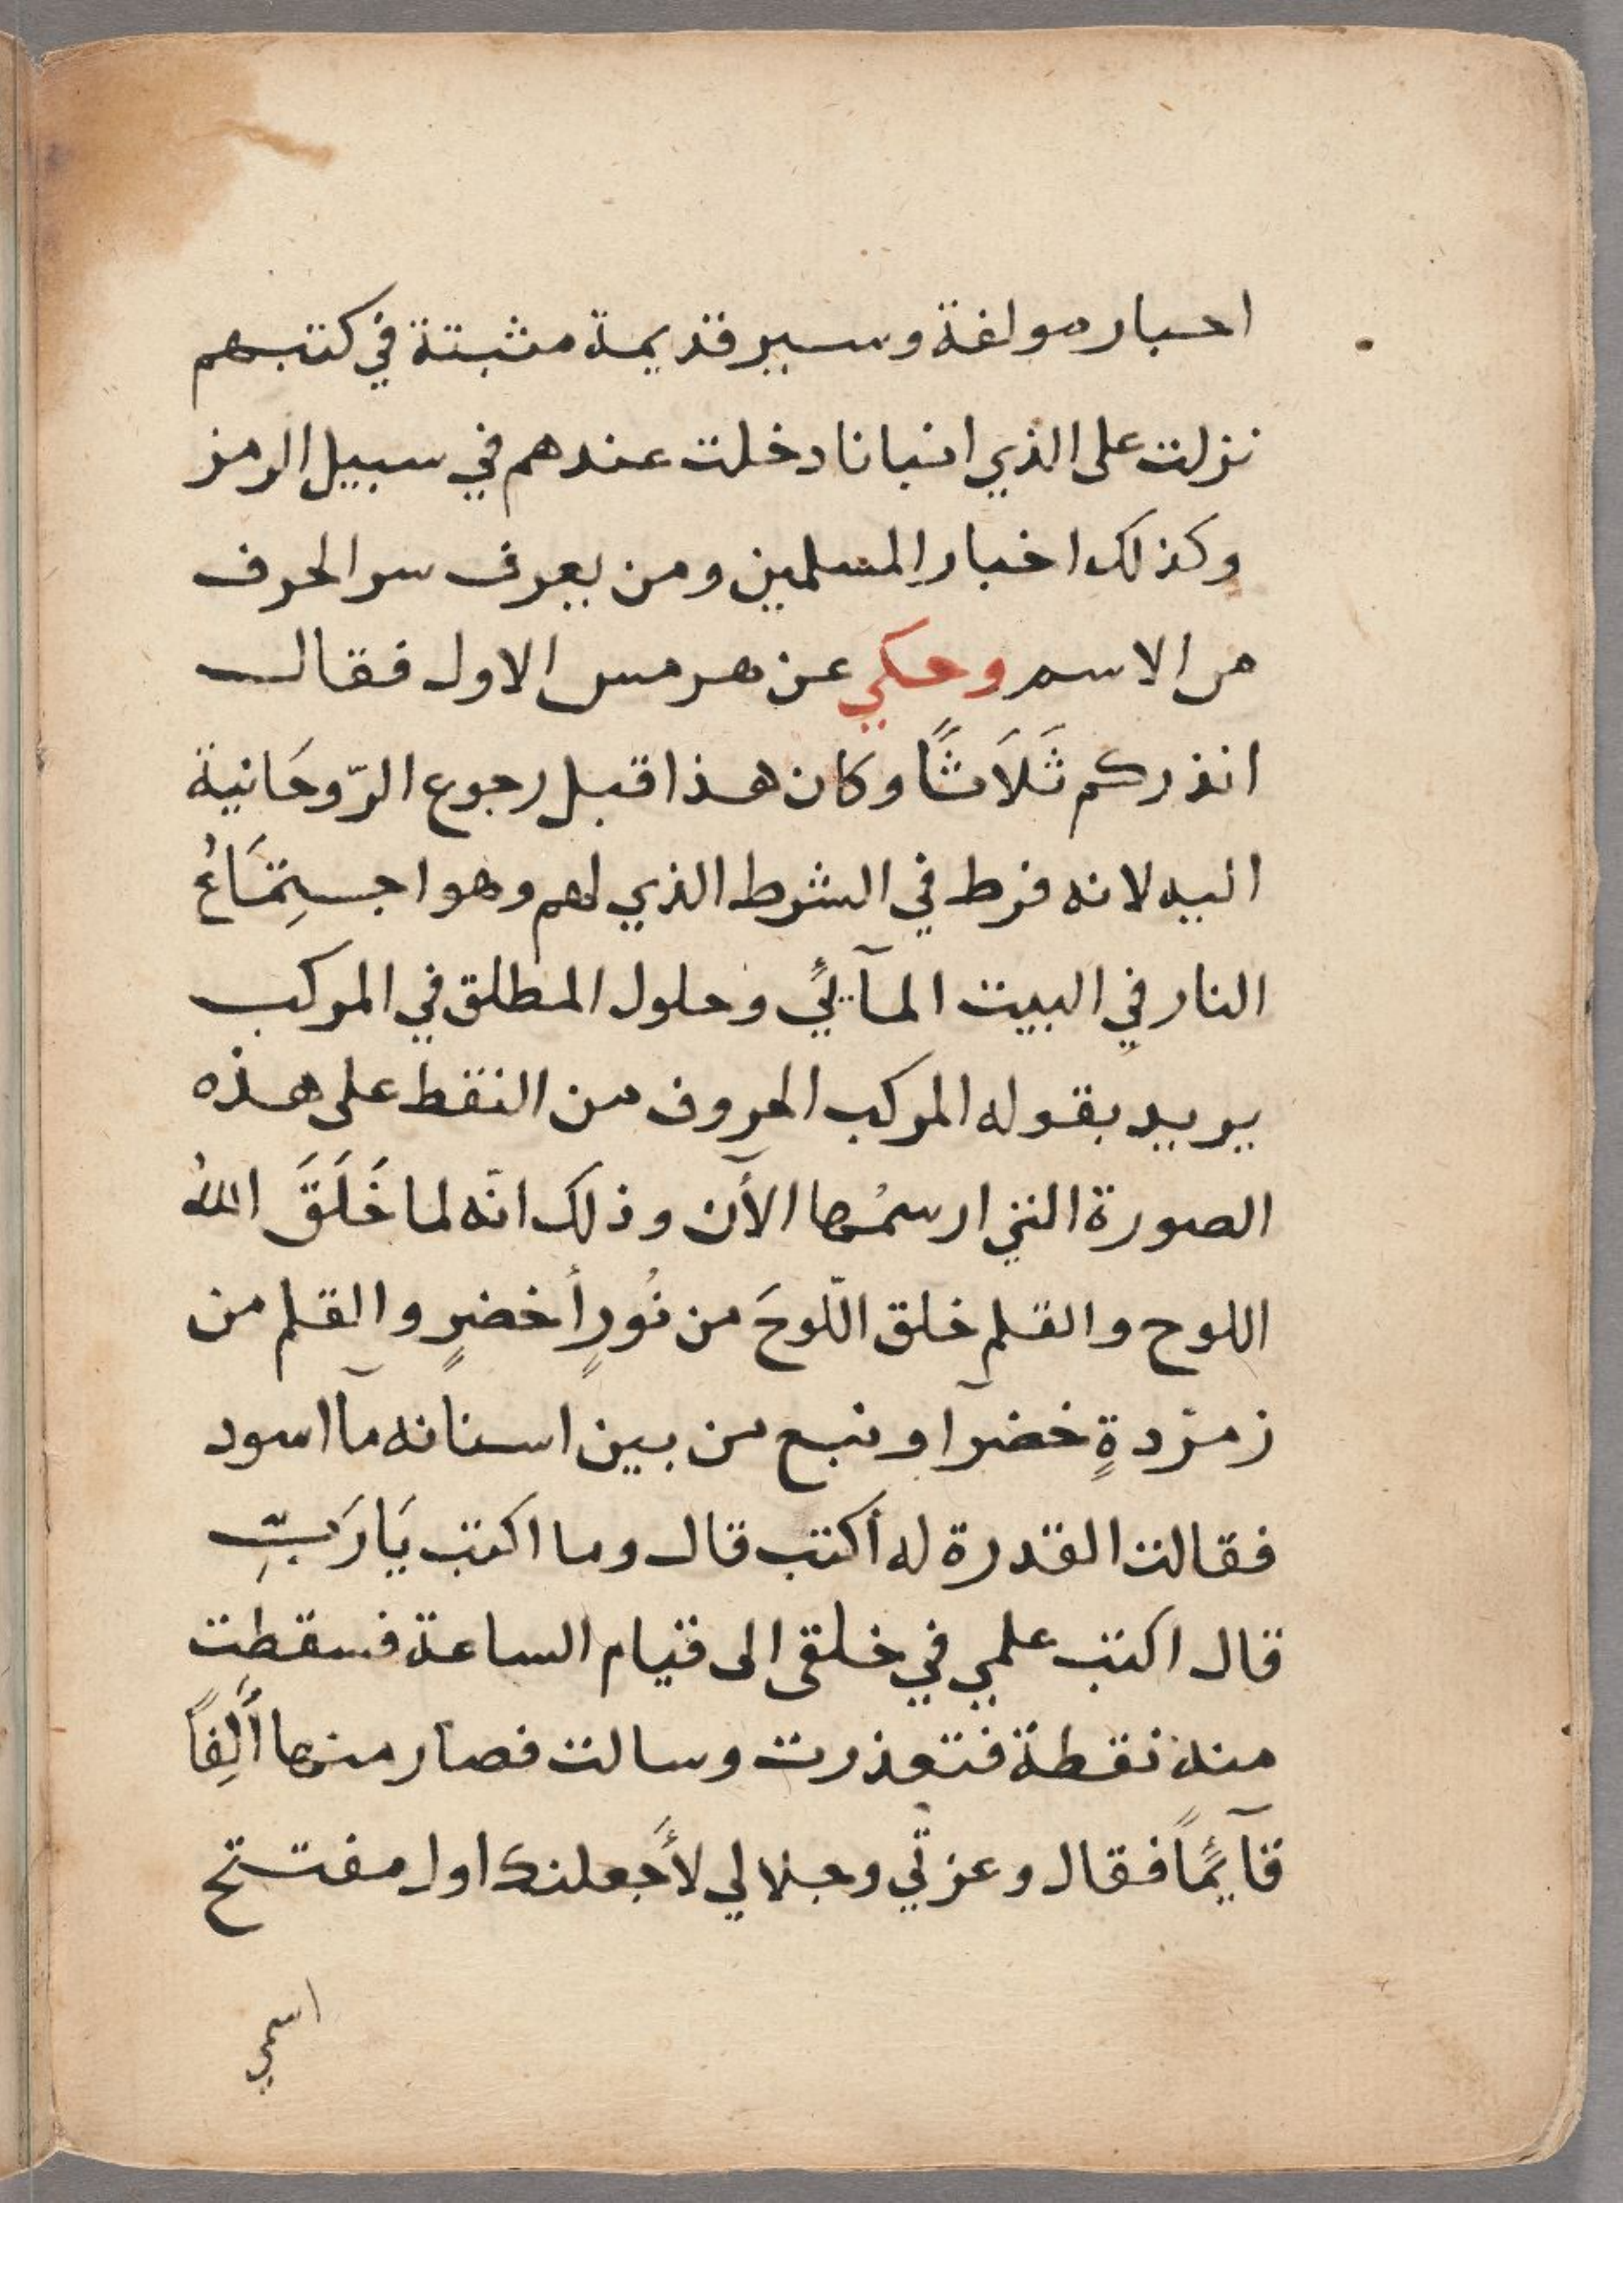 احبار مولفة وسير قديمة مثبتة في كتبهم
نزلت على الذي انبانا دخلت عندهم في سبيل الرمز
وكذلك اخبار المسلمين ومن يعرف سر الحرف
من الاسم وحكي عن هرمس الاول فقال
انذركم ثَلَاثًا وكان هذا قبل رجوع الرّوحَانية
اليه لانه فرط في الشرط الذي لهم وهو اجتِمَاعُ
النار في البيت المآئي وحلول المطلق في المركب
يريد بقوله المركب الحروف من النقط على هذه
الصورة التي ارسمُها الآن وذلك انّه لما خَلَقَ اللهُ
اللوح والقلم خلق اللّوحَ من نُورٍ أخضرٍ والقلم من
زمرّدةٍ خضرآ ونبع من بين اسنانه مآ اسود
فقالت القدرة له أكتب قال وما اكتب يَا رَبِّ
قال اكتب علمي في خلقى الى قيام الساعة فسقطت
منه نقطة فتعذرت وسالت فصار منها أَلِفاً
قآئماً فقال وعزتي وجلالي لأَجعلنك اول مفتتح
اسمي